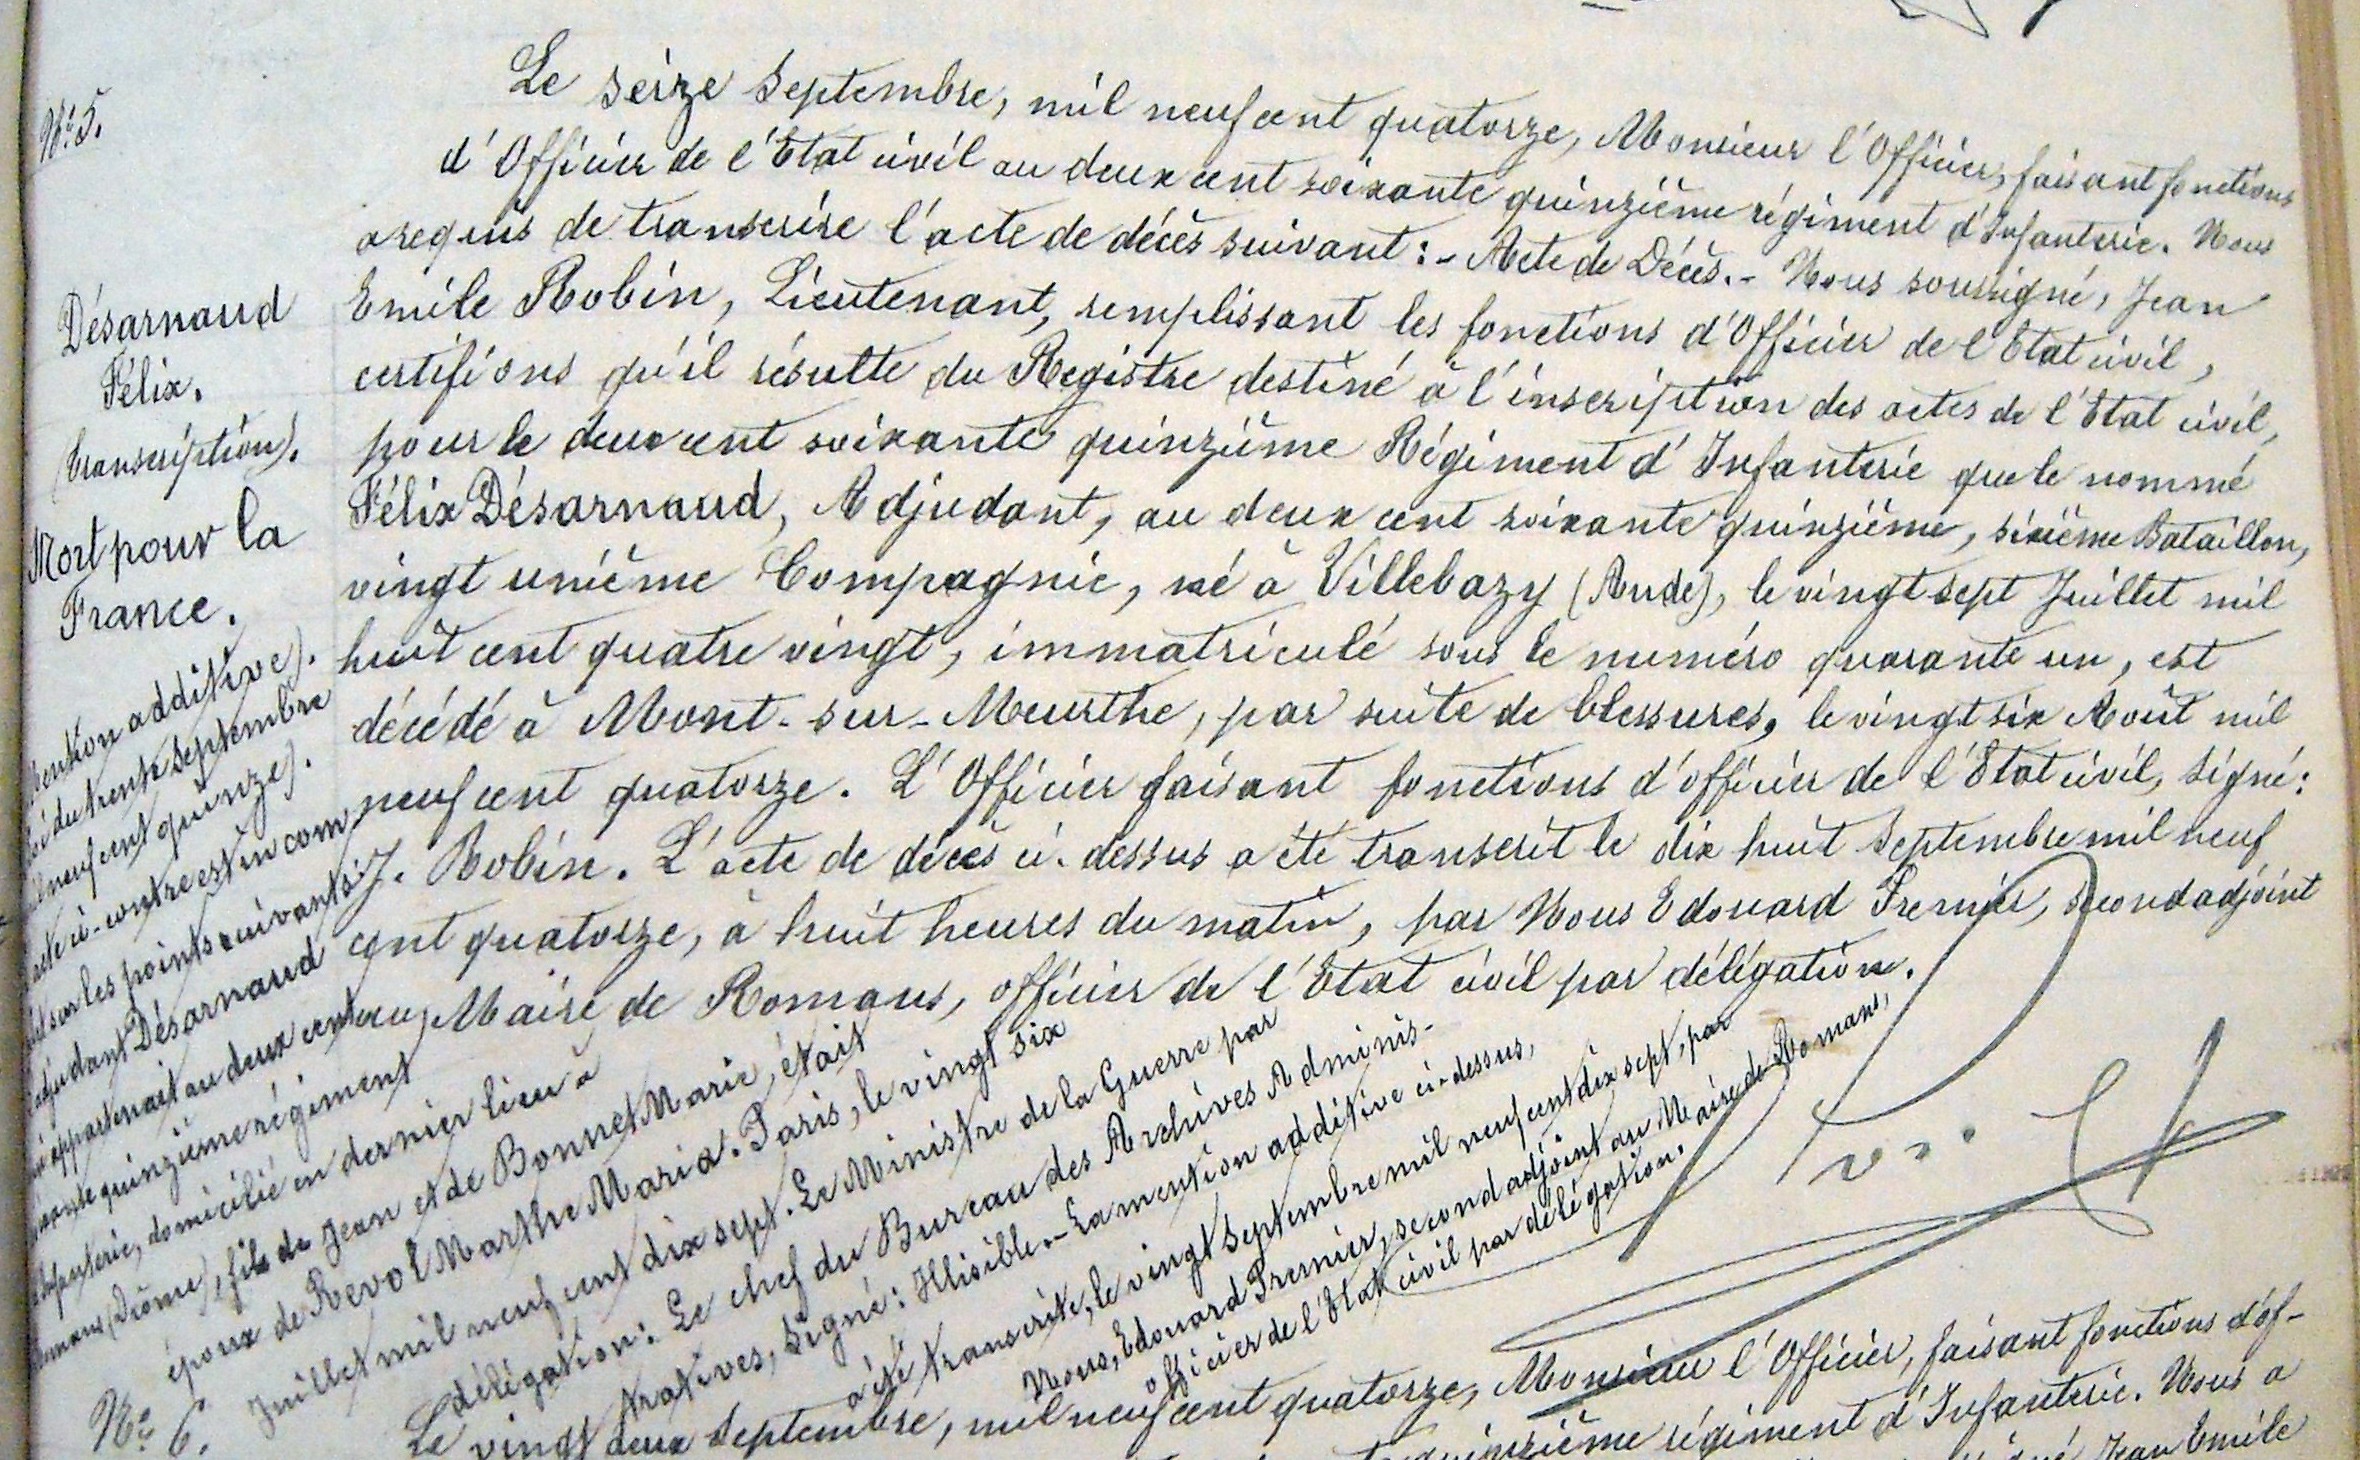 N° 5.
Désarnaud
Félix.
(transcription).
Mort pour la
France.
Le seize septembre, mil neuf cent quatorze, Monsieur l'Officier, faisant fonctions
d'Officier de l'Etat civil au deux cent soixante quinzième régiment d'Infanterie. Nous
a requis de transcrire l'acte de décès suivant :- Acte de Décès.- Nous soussigné, Jean
Emile Robin, Lieutenant, remplissant les fonctions d'Officier de l'Etat civil,
certifions qu'il résulte du Registre destiné à l'inscription des actes de l'Etat civil,
pour le deux cent soixante quinzième Régiment d'Infanterie que le nommé
Félix Désarnaud, Adjudant, au deux cent soixante quinzième, sixième Bataillon,
vingt unième Compagnie, né à Villebazy (Aude), le vingt sept Juillet mil
huit cent quatre vingt, immatriculé sous le numéro quarante un, est
décédé à Mont-sur-Meurthe, par suite de blessures, le vingt six Août mil
neuf cent quatorze. L'Officier faisant fonctions d'officier de l'Etat civil, signé :
J. Robin. L'acte de décès ci-dessus a été transcrit le dix huit Septembre mil neuf
cent quatorze, à huit heures du matin, par Nous Edouard Premier, second adjoint
au Maire de Romans, officier de l'Etat civil par délégation.
mention additive).
loi du trente Septembre
mil neuf cent quinze).
L'acte ci-contre est incom
plet sur les points suivants :
l'adjudant Désarnaud
qui appartenait au deux cent
soixante quinzième régiment
d'Infanterie, domicilié en dernier lieu à
Romans (Drôme), fils de Jean et de Bonnet Marie, était
époux de Revol Marthe Maria. Paris, le vingt six
Juillet mil neuf cent dix sept. Le Ministre de la Guerre par
délégation : Le chef du Bureau des Archives Adminis-
tratives, Signé : Illisible.- La mention additive ci-dessus,
a été transcrite, le vingt Septembre mil neuf cent dix sept, par
Nous, Edouard Premier, second adjoint au Maire de Romans,
officier de l'Etat civil par délégation.
N° 6.
Le vingt deux Septembre, mil neuf cent quatorze, Monsieur l'Officier, faisant fonctions d'of-
quinzième régiment d'Infanterie. Nous a
Jean Emile